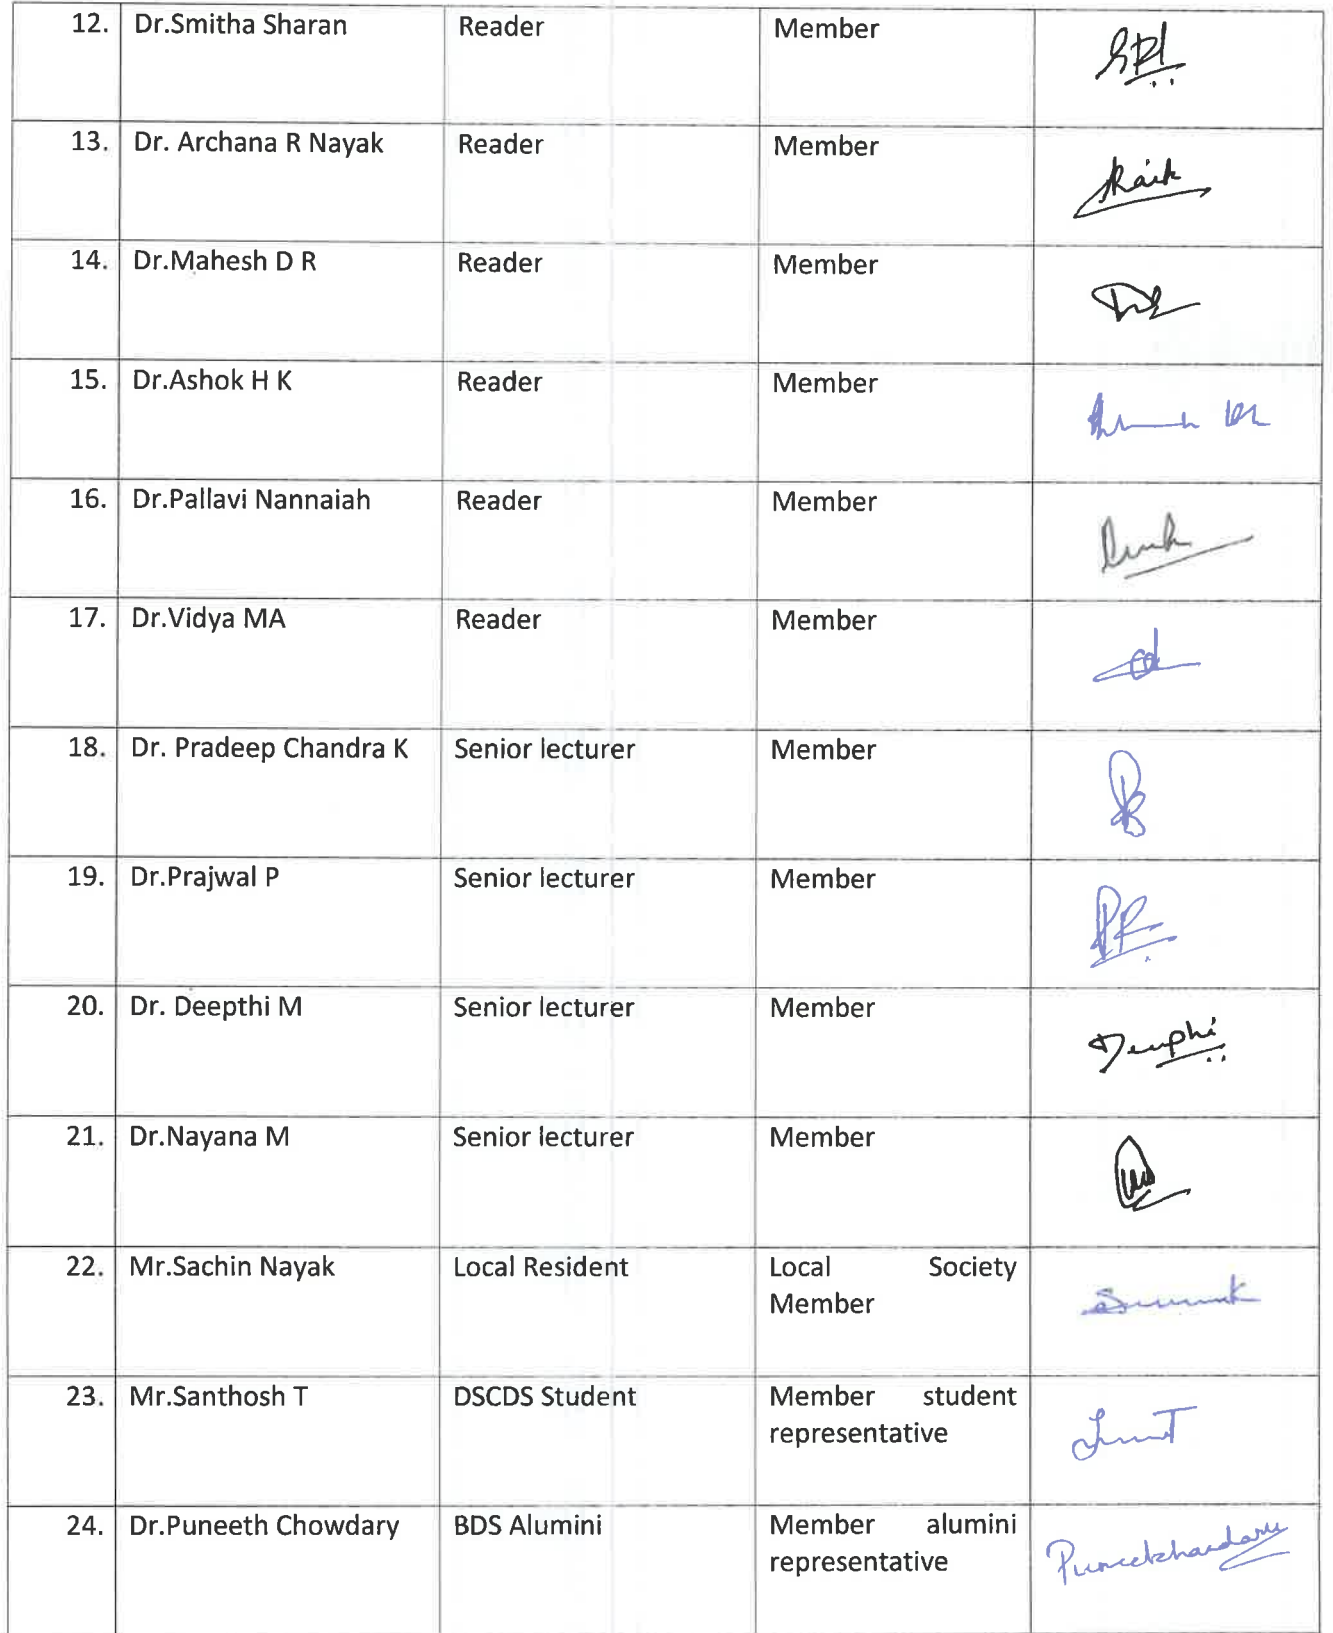 12. Dr.Smitha Sharan Reader Member
13. Dr. Archana R Nayak Reader Member
14. Dr.Mahesh D R Reader Member
15. Dr.Ashok H K Reader Member
16. Dr.Pallavi Nannaiah Reader Member
17. Dr.Vidya MA Reader Member
18. Dr. Pradeep Chandra K Senior lecturer Member
19. Dr.Prajwal P Senior lecturer Member
20. Dr. Deepthi M Senior lecturer Member
21. Dr.Nayana M Senior lecturer Member
22. Mr.Sachin Nayak Local Resident Local Society
Member
23. Mr.Santhosh T DSCDS Student Member student
representative
24. Dr.Puneeth Chowdary BDS Alumini Member alumini
representative